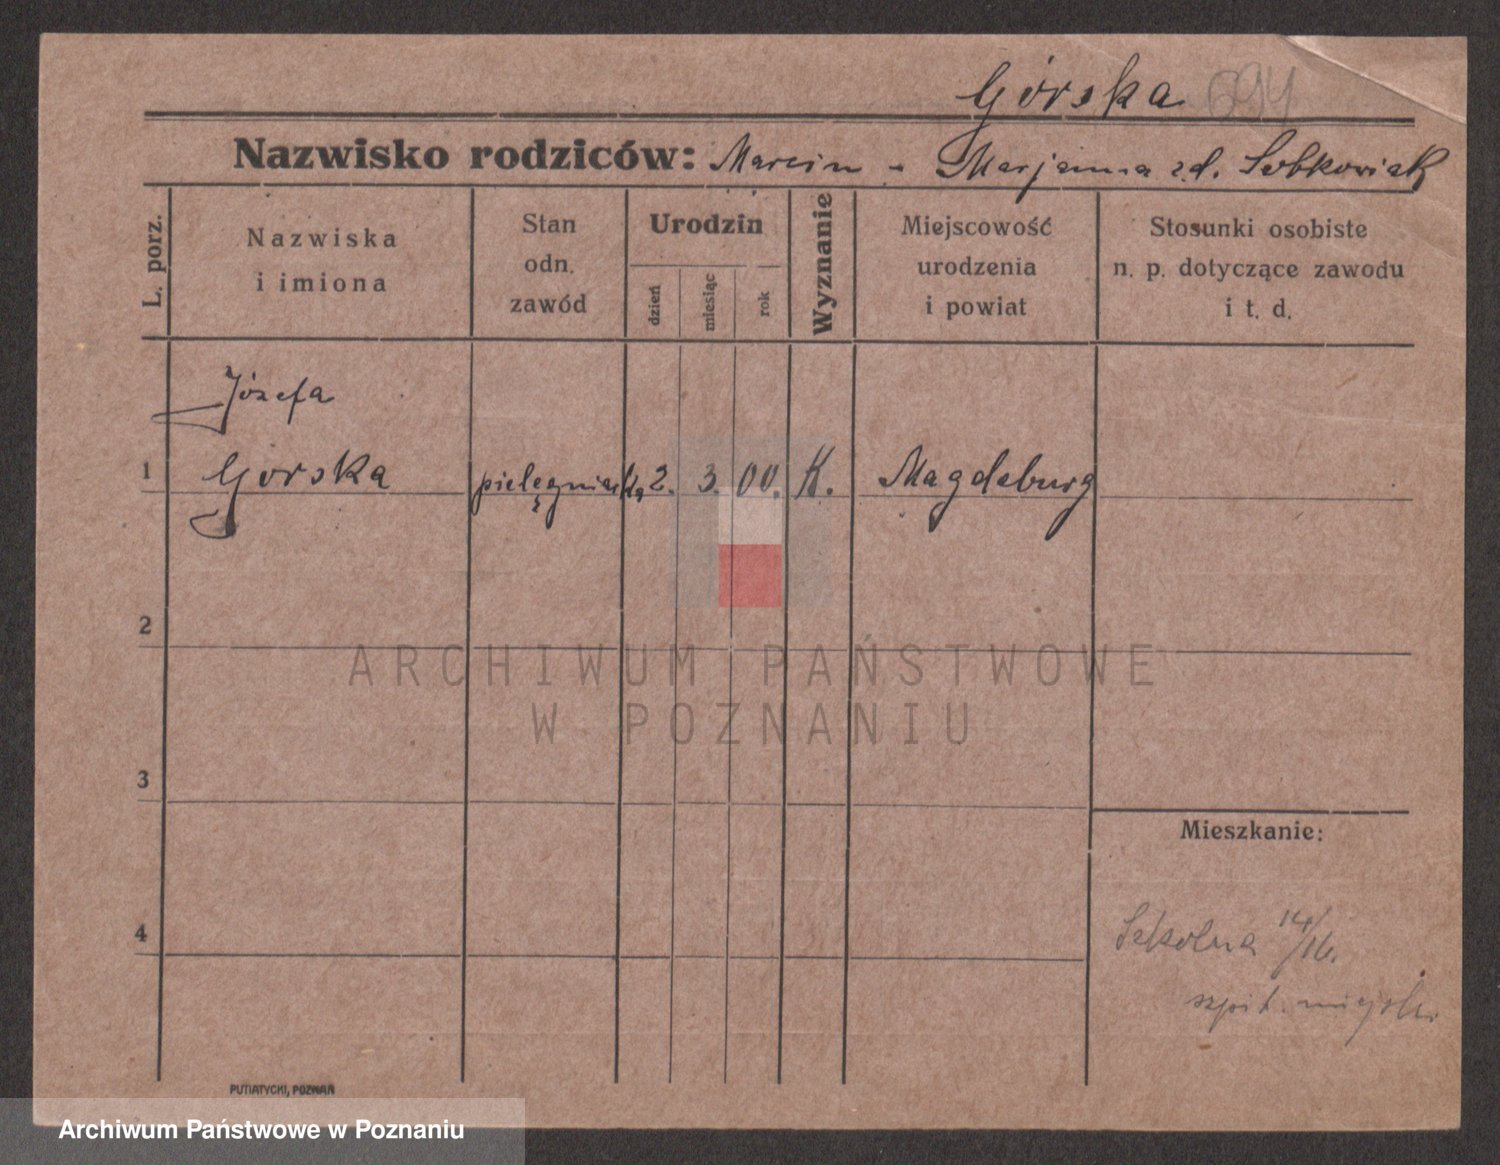 Górska 694
Nazwisko rodziców: Marcin - Marjanna z d. Sobkowiak
L. porz.
Nazwiska
i imiona
Stan
odn.
zawód
Urodzin
dzień
miesiąc
rok
Wyznanie
Miejscowość
urodzenia
i powiat
Stosunki osobiste
n. p. dotyczące zawodu
i t. d.
Józefa
1 Górska pielęgniarka 2. 3. 00. K. Magdeburg
2
ARCHIWUM PAŃSTWOWE
W POZNANIU
3
Mieszkanie:
4
Szkolna 14/16.
szpit. miejski
PUTIATYCKI, POZNAŃ
Archiwum Państwowe w Poznaniu